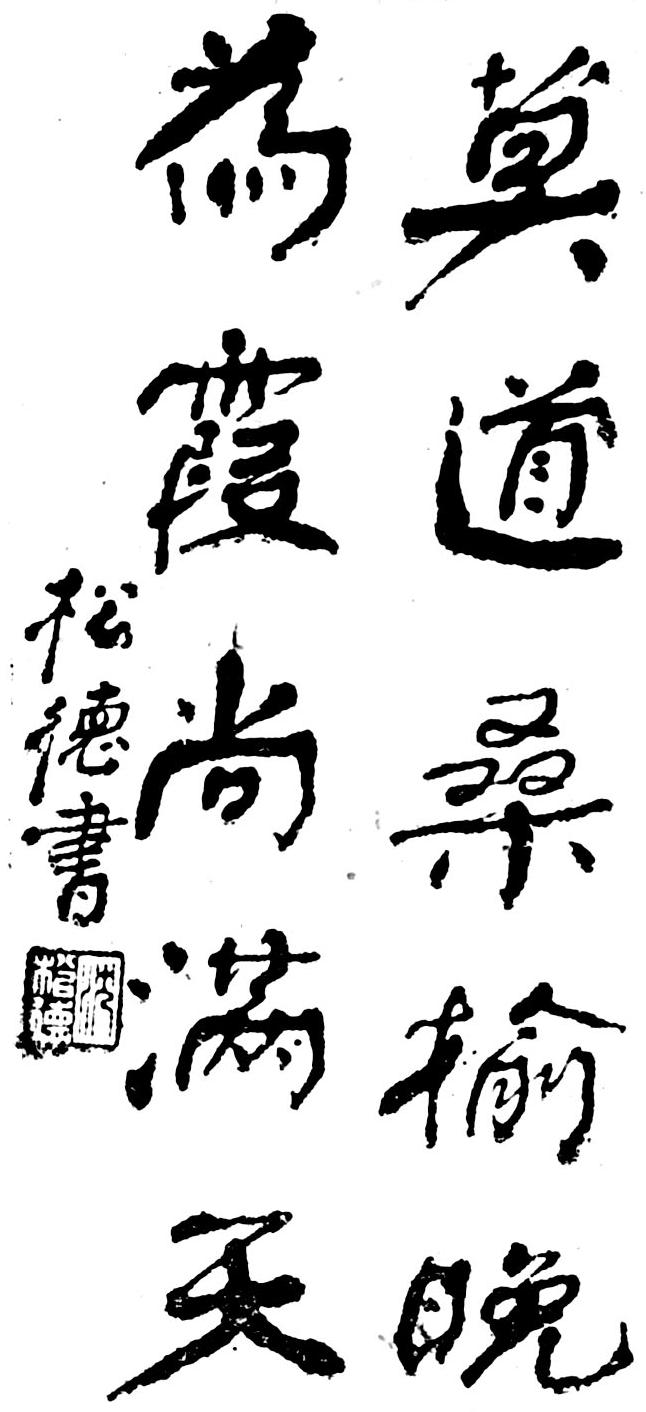 莫道桑榆晚
為霞尚滿天
松德書
松德